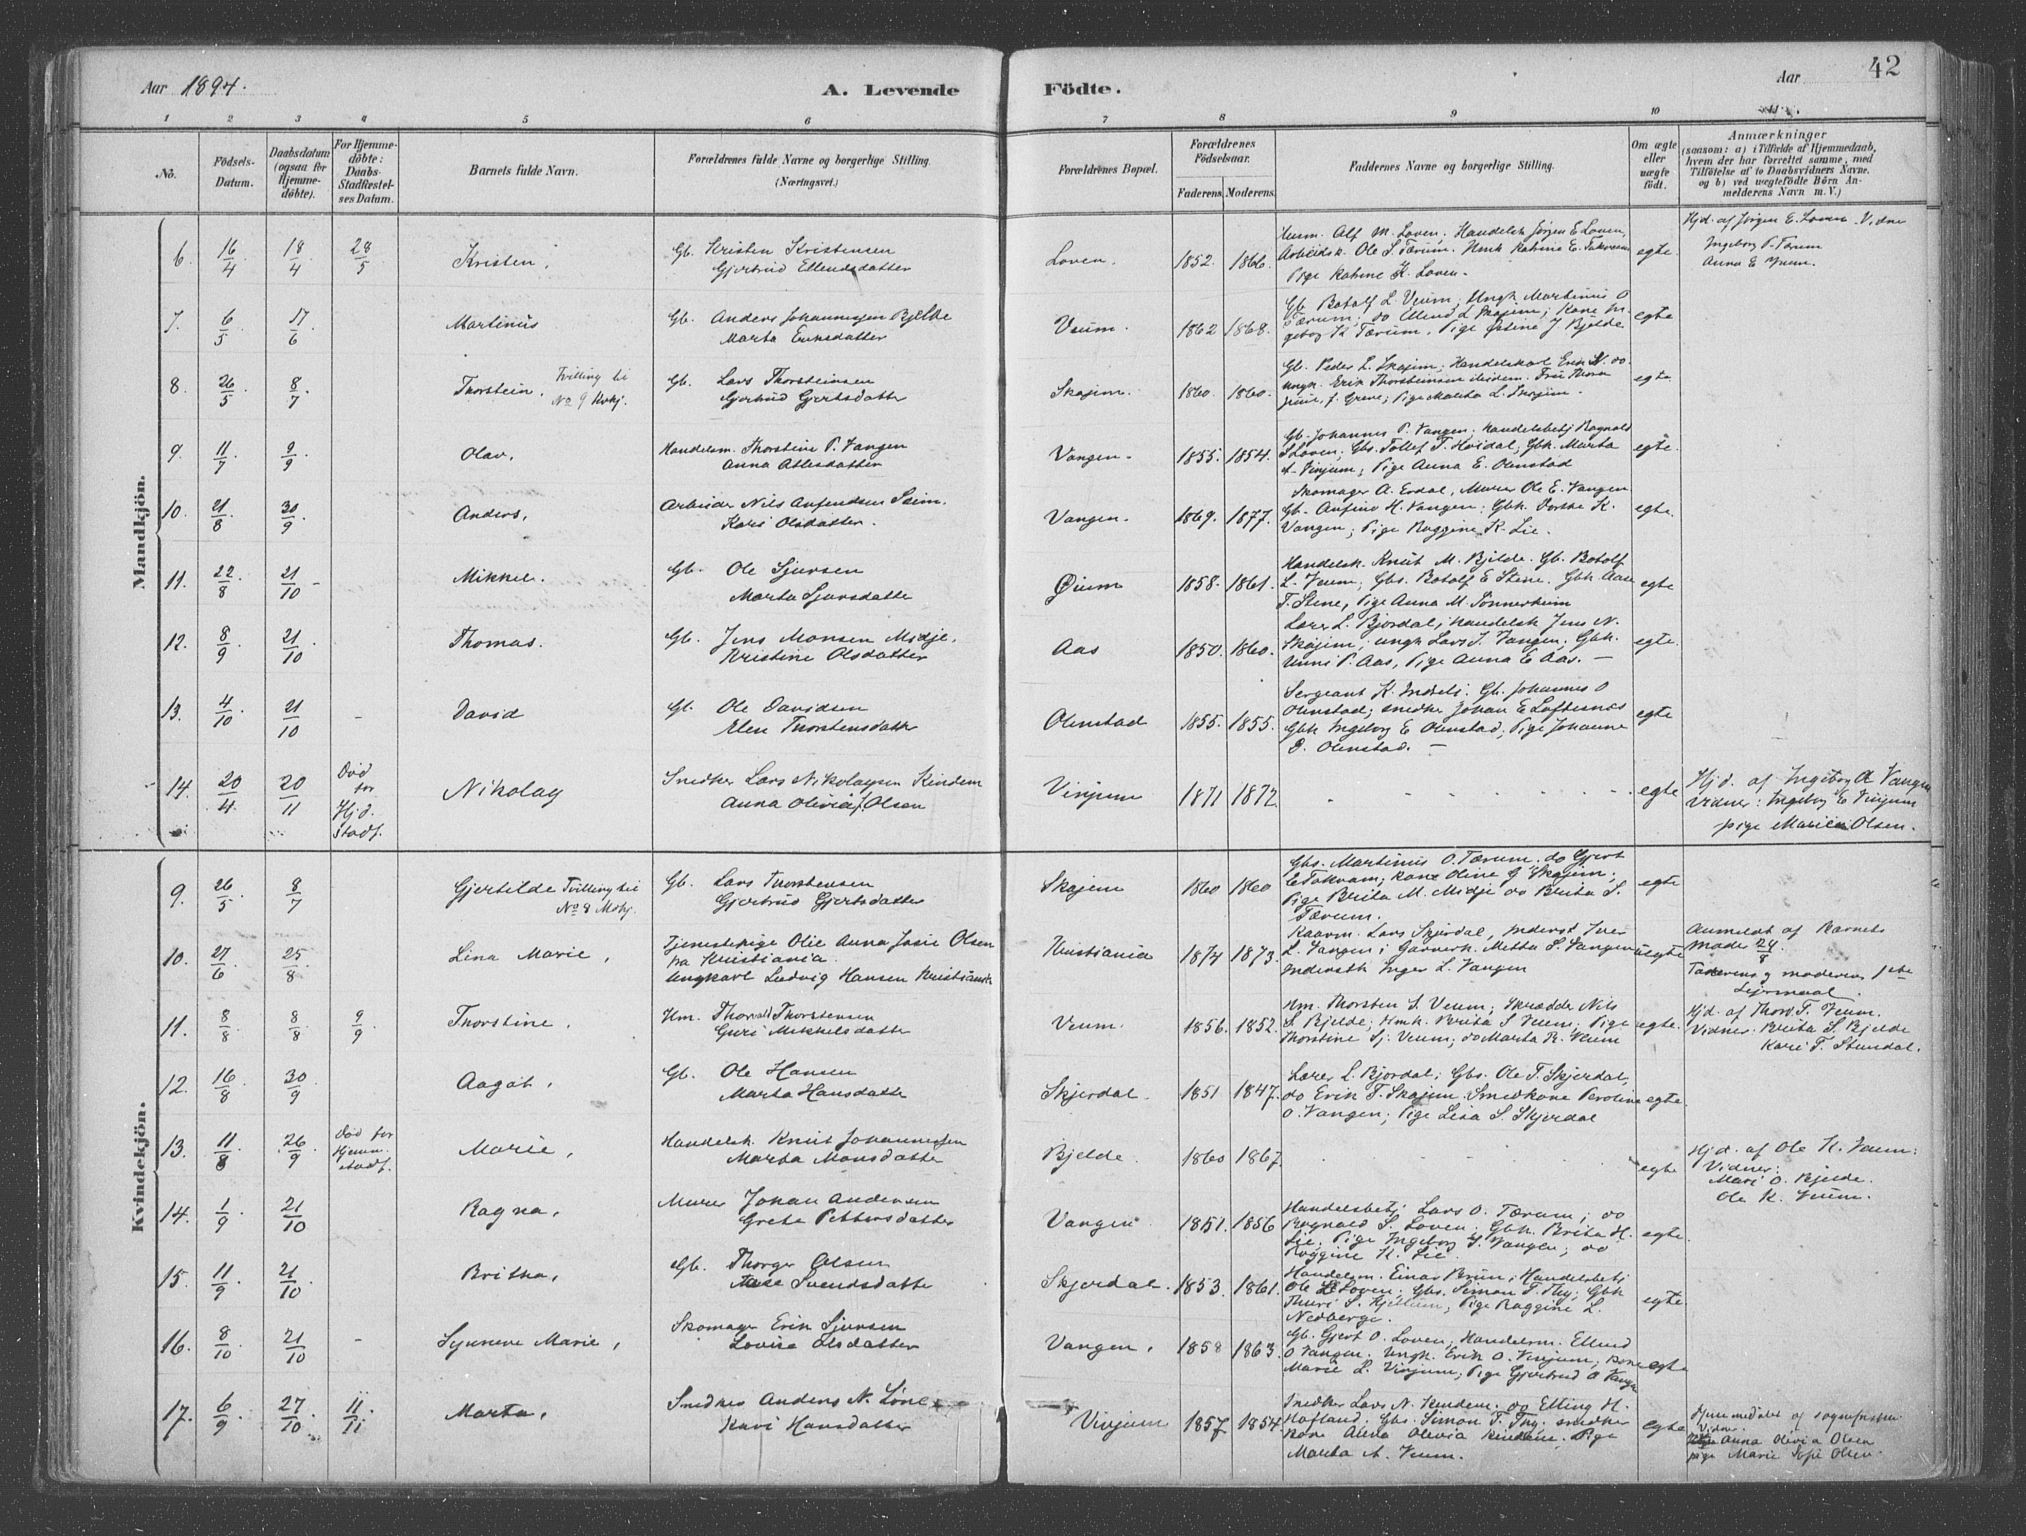 Aar 1894.
A. Levende Födte.
Aar
42
1 2 3 4 5 6 7 8 9 10 11
No.
Födsels-Datum.
Daabsdatum (ogsaa for Hjemme-döbte).
For Hjemme-döbte: Daabs-Stadfæstel-ses Datum.
Barnets fulde Navn.
Forældrenes fulde Navne og borgerlige Stilling. (Næringsvei.)
Forældrenes Bopæl.
Forældrenes Födselsaar.
Faderens. Moderens.
Faddernes Navne og borgerlige Stilling.
Om ægte eller uægte födt.
Anmærkninger
(saasom: a) i Tilfælde af Hjemmedaab,
hvem der har forrettet samme, med
Tilföielse af to Daabsvidners Navne.
og b) ved uægtefödte Börn An-
melderens Navn m. V.)
Mandkjön.
6. 16/4 18/4 28/5 Kristen. Gb. Kristen Kristensen
Gjertrud Ellendsdatter
Loven. 1852. 1866.
Huum. Alf M. Loven. Handelsk Jørgen E Loven,
Arbeidsk. Ole S. Tærum. Hmk Katrine E.
Pige Katrine K. Loven.
egte.
Hjd. af Jørgen E. Loven Vidne
Ingeborg P. Tærum
Anna E Veum.
7. 6/5 17/6 Martinus Gb. Anders Johannessen Bjelde
Marta Eriksdatter
Veum. 1862 1868.
Gb. Botolf L Veum; Ungk Martinus O
Tærum; do Ellend L Skajem; Kone In-
geborg K. Tærum. Pige J Bjelde
egte
8. 26/5 8/7 Thorstein, Tvilling til
No 9 Kvkj.
Gb. Lars Thorsteinsen
Gjertrud Gjertsdatter
Skajem. 1860. 1860.
Gb. Peder L. Skajem; Handelskarl Erik N. do.
Ungk. Erik Thorsteinsen ibidem. Frü Thora
f. Greve; Pige Marita L. Skajem.
egte
9. 11/7 9/9 Olav, Handelsm. Thorstine P. Vangen
Anna Atlesdatter
Vangen. 1855. 1854.
Gb. Johannes P. Vangen; Handelsbetj Ragnald
S Loven; Gbs. Tollef T. Hvidal; Gbk. Marta
A. Vinjum; Pige Anna E. Olmstad
egte.
10. 21/8 30/9 Anders, Arbeider Nils Anfindsen Seim.
Kari Olsdatter.
Vangen. 1869. 1877.
Skomager A. Erdal, Murer Ole E. Vangen
Gb. Anfind H. Vangen; Gbk. Dorthe K.
Vangen; Pige Raggine K. Lie.
egte.
11. 22/8 21/10 Mikkel. Gb. Ole Sjursen
Marta Sjursdatte
Øium 1858. 1861.
Handelsk. Knut M. Bjelde. Gb. Botolf
L. Veum; Gbs. Botolf E Stene. Gbk Aase
T. Stene, Pige Anna M. Sønnerheim
egte
12. 8/9 21/10 Thomas. Gb. Jens Monsen Midje.
Kristine Olsdatter
Aas 1850. 1860.
Lærer L. Bjordal; Handelsk Jens N.
Skajem; ungk Lars I. Vangen; Gbk.
Unni P. Aas, Pige Anna E Aas. —
egte.
13. 4/10 21/10 - David Gb. Ole Davidsen
Elen Thorstensdatte
Olmstad 1855. 1855.
Sergeant K. Indseli. Gb. Johannes O
Olmstad; Snedker Johan E Loftesnæs
Gbk Ingeborg E Olmstad; Pige Johanne
D. Olmstad. —
egte
14. 20/4 20/11 Død
for
Hjd.
Stadf.
Nikolay Snedker Lars Nikolaysen Kindem
Anna Olivia J. Olsen
Vinjum 1871 1872.
egte
Hjd. af Ingeborg A Vangen
Vidner: Ingeborg E Vinjum
pige Marie Olsen.
Kvindekjön.
9. 26/5 8/7 Gjertilde Tvilling til
No 8 Mdkj.
Gb. Lars Thorstensen
Gjertrud Gjertsdatter
Skajem 1860 1860
Gbs. Martinus O. Tærum. do Gjert
E Tokvam; kone Oline G Skajem;
Pige Brita M. Midje do Brita S.
Tærum.
egte
10. 27/6 25/8 Lina Marie, Tjenestepige Olie Anna Josie Olsen
fra Kristiania.
Ungkarl Ludvig Hansen Kristiania
Kristiania 1874 1873.
Kaarm. Lars Skjerdal, Inderst Iver
L. Vangen; Garverk. Metta S. Vangen
Inderstk Inger L. Vangen
uegte
Anmeldt af Barnets
Moder 24/8
Faderens og moderens 1ste
Lejermaal.
11. 8/8 8/8 9/9 Thorstine, Hm. Thorvald Thorstensen
Guri Mikkelsdatte
Veum. 1856. 1852.
Hm. Thorsten S Veum; Skrædder Nils
S. Bjelde; Hmk. Brita S Veum; Pige
Thorstine Sj. Veum; do Marta R. Veum
egte.
Hjd. af Thorv. T. Veum.
Vidner. Brita S. Bjelde
Kari T. Stundal.
12. 16/8 30/9 Aagot, Gb. Ole Hansen
Marta Hansdatte
Skjerdal. 1851 1847.
Lærer L. Bjordal; Gbs. Ole T. Skjerdal,
do Erik T. Skajem. Smedkone Peroline
O. Vangen; Pige Lisa S. Skjerdal
egte.
13. 11/8 26/9 Død før
Hjem.
stadf.
Marie, Handelsk. Knut Johannessen
Marta Monsdatte
Bjelde. 1860 1867.
egte
Hjd. af Ole K. Veum:
Vidner:
Mari O. Bjelde.
Ole K. Veum.
14. 1/9 21/10 Ragna, Murer Johan Andersen
Grete Pettersdatte
Vangen 1851. 1856
Handelsbetj. Lars O. Tærum; do
Ragnald S. Loven; Gbk. Brita H.
Lie. Pige Ingeborg J. Vangen; do
Raggine K. Lie.
egte.
15. 11/9 21/10 Britha, Gb. Thorger Olsen
Aase Svendsdatte
Skjerdal. 1853. 1861.
Handelsm. Einar Brun; Handelsbetj
Ole E Loven; Gbs. Simon T. Thy; Gbk
Thuri S. ; Pige Raggine L.
Nedberge.
egte.
16. 8/10 21/10 - Synneve Marie, Skomager Erik Sjursen
Lovise Olsdatter
Vangen, 1858 1863.
Gb. Gjert O. Loven; Handelsm. Ellend
O Vangen. Ungk. Erik O. Vinjum; Kone
Marie L. Vinjum; Pige Gjertrud O Vangen
egte
17. 6/9 27/10 11/11 Marta, Snedker Anders N.
Kari Hansdatter
Vinjum 1857 1854.
Snedker Lars N. Kindem. do Elling H.
Hofland; Gbs. Simon T. Thy. snedker
kone Anna Olevia Kindem; Pige
Marta A. Veum.
egte
Hjemmedøbt af sognepresten
Vidne.
Anna Olevia Olsen
pige Marie Sofie Olsen.